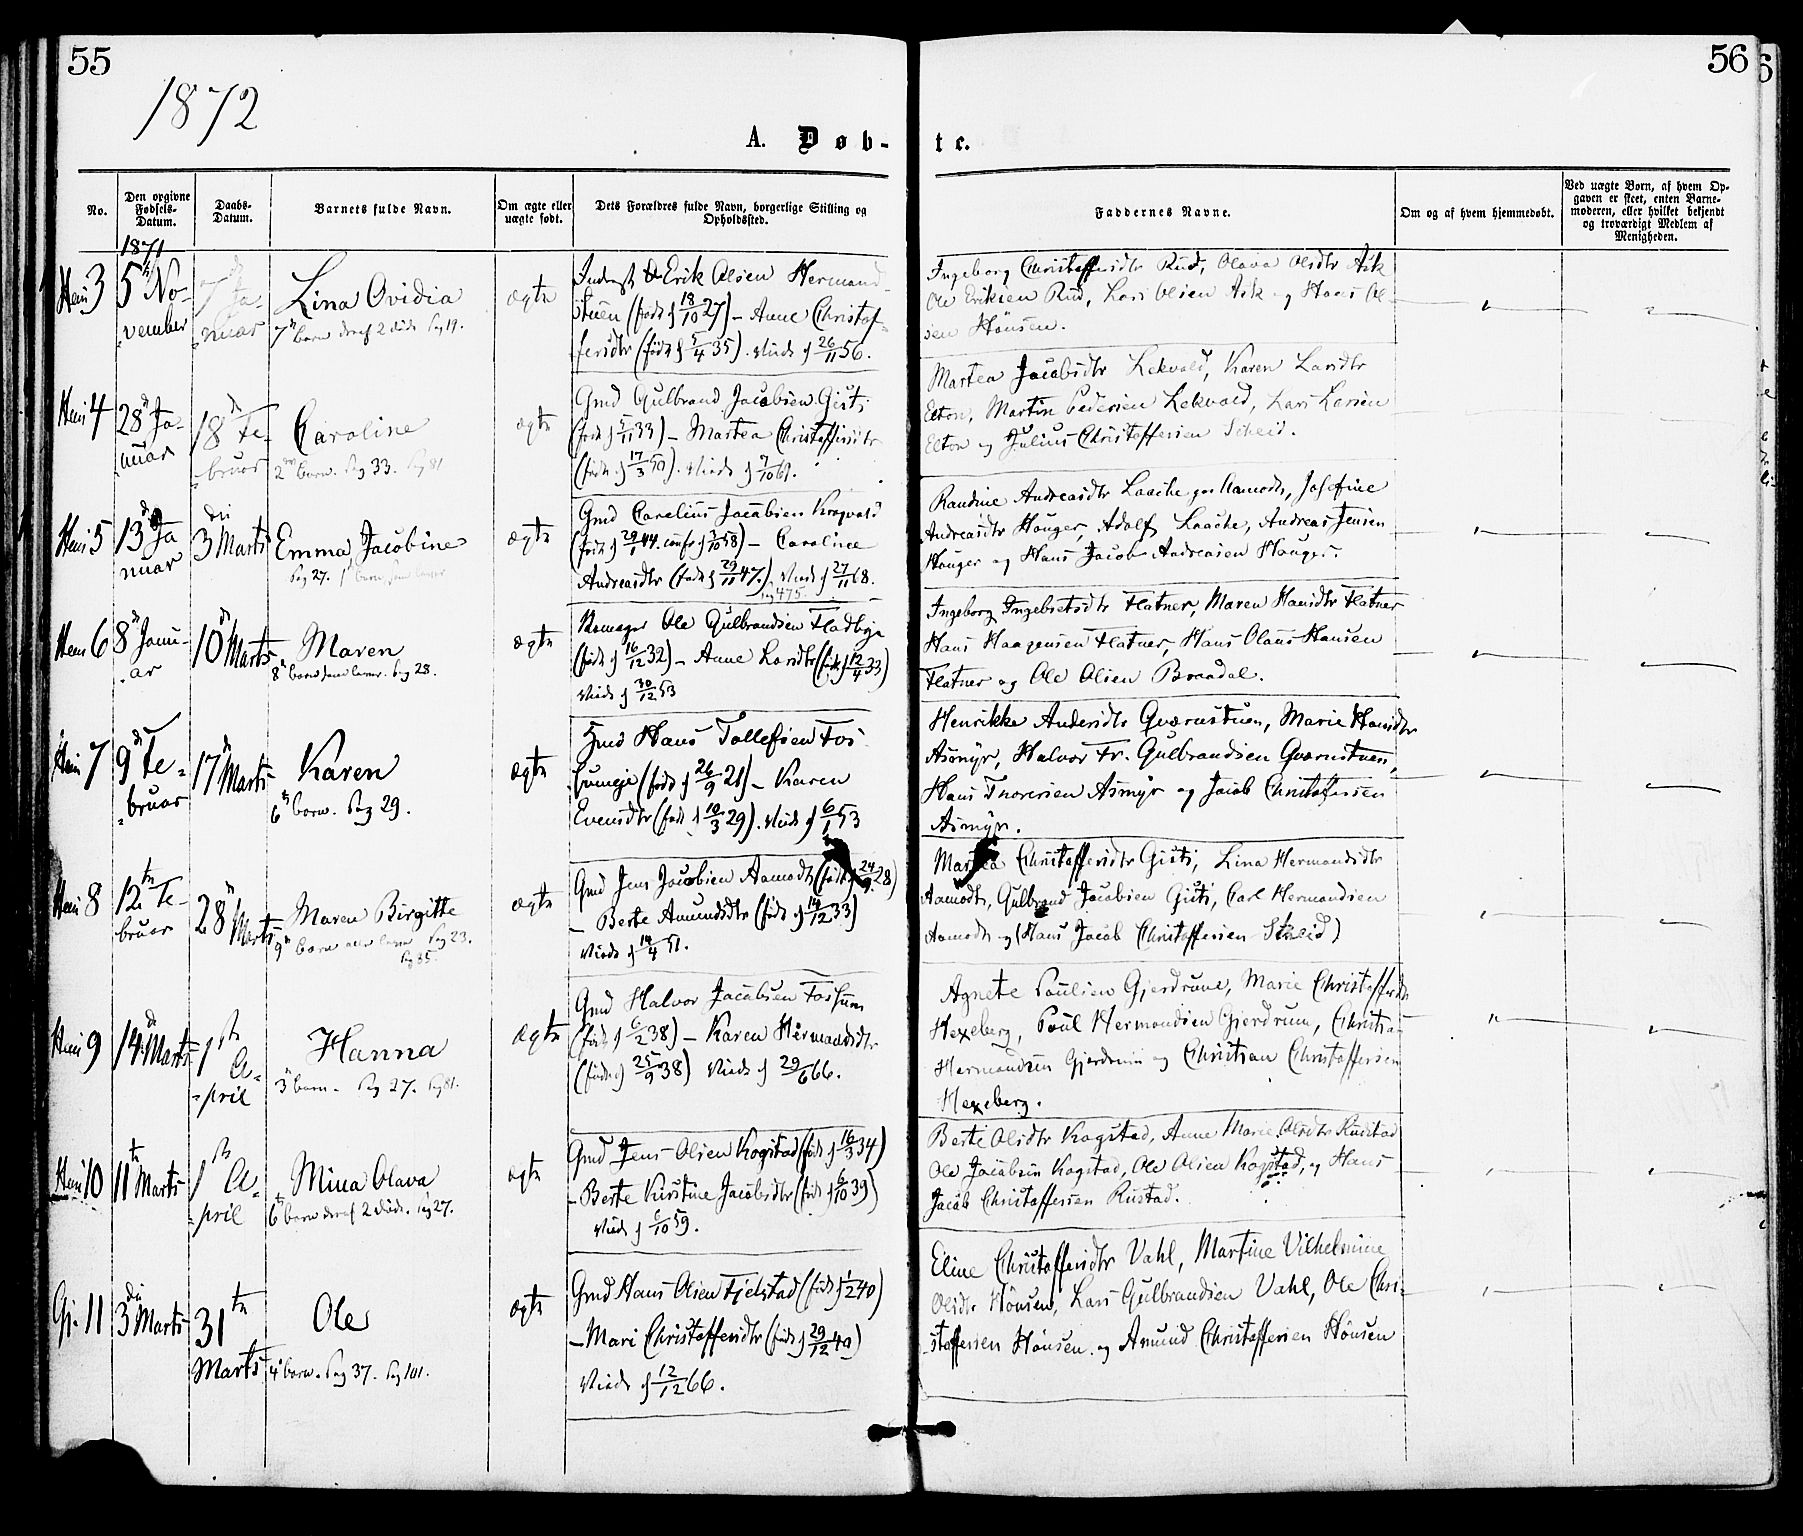 55
56
1872
A. Døb-
te.
No.
Den opgivne Fødsels-Datum.
Daabs-Datum.
Barnets fulde Navn.
Om ægte eller uægte født.
Dets Forældres fulde Navn, borgerlige Stilling og Opholdssted.
Faddernes Navne.
Om og af hvem hjemmedøbt.
Ved uægte Børn, af hvem Opgaven er skeet, enten Barnemoderen, eller hvilket bekjendt og troværdigt Medlem af Menigheden.
1871
3
5te No-
vember
7de Ja-
nuar
Lina Ovidia
7de barn deraf 2 døde Pag 19.
ægte
Erik Olsen Hermand-
stuen (født d 18/10 27) – Anne Christof-
fersdtr (født d 5/4 35). Viede d 26/11 56.
Ingeborg Christoffersdtr Rud, Olava Olsdtr Ask
Ole Eriksen Rud, Lars Olsen Ask og Hans Ol-
sen Hönsen.
4
28de Ja-
nuar
18de Fe-
bruar
Caroline
2det barn. Pag 33. Pag 81
ægte
Gmd Gulbrand Jacobsen Gisti
(født d 5/11 33) – Martea Christoffersdtr
(født d 17/3 ). Viede d 7/10 69.
Martea Jacobsdtr Lekvold, Karen Larsdtr
Elton, Martin Pedersen Lekvold, Lars Larsen
Elton og Julius Christoffersen Scheid.
5
13de Ja
nuar
3die Marts
Emma Jacobine
Pag 27. 1ste barn
ægte
Gmd Carelius Jacobsen Krogvold
(født d 29/1 44. conf. d 3/10 58) – Caroline
Andreasdtr (født d 29/11 47.). Viede d 27/11 68.
Pag 475.
Randine Andreasdtr Laache Aamodt, Josefine
Andreasdtr Hauger, Adolf Laache, Andreas Jensen
Hauger og Hans Jacob Andreasen Hauger.
6
8de Janu-
ar
10de Marts
Maren
8de barn Pag 28.
ægte
Skomager Ole Gulbrandsen Fladbye
(født d 16/12 32) – Anne Larsdtr (født d 12/4 33)
Viede d 30/12 53
Ingeborg Ingebretsdtr Flatner, Maren Hansdtr Flatner
Hans Haagensen Flatner, Hans Olaus Hansen
Flatner og Ole Olsen Braadal.
7
9de Fe-
bruar
17de Marts
Karen
6te barn. Pag 29.
ægte
Hans Tollefsen Fos-
humeje (født d 26/9 21) – Karen
Evensdtr (født d 10/3 29). Viede d 6/1 53
Henrikke Andersdtr Qværnstuen, Marie Hansdtr
Asmyr, Halvor Fr. Gulbrandsen Qværnstuen,
Hans Thoresen Asmyr og Jacob Christoffersen
Asmyr.
8
12te Fe-
bruar
28de Marts
Maren Birgitte
9de barn Pag 23.
Pag 85
ægte
Gmd Jens Jacobsen Aamodt (født 24/9 28)
– Berte Amundsdtr (født d 14/12 33)
Viede d 14/4 51.
Martea Christoffersdtr Gisti, Lina Hermandsdtr
Aamodt, Gulbrand Jacobsen Gisti, Carl Hermandsen
Aamodt og (Hans Jacob Christoffersen Scheid)
9
14de Marts
1ste A-
pril
Hanna
3die barn – Pag 27. Pag 81.
ægte
Gmd Halvor Jacobsen Fossum
(født d 6/2 38) – Karen Hermandsdtr
(født d 25/9 38) Viede d 29/6 66.
Agnete Poulsen Gjerdrum, Marie Christoffersdtr
Hexeberg, Poul Hermandsen Gjerdrum, Christian
Hermandsen Gjerdrum og Christian Christoffersen
Hexeberg.
10
11te Marts
1ste A-
pril
Mina Olava
6te barn deraf 2 døde. Pag 27.
ægte
Gmd Jens Olsen Kogstad (født d 16/3 34)
– Berte Kirstine Jacobsdtr (født d 6/10 39)
Viede d 6/10 59.
Berte Olsdtr Kogstad, Anne Marie Olsdtr Rustad
Ole Jacobsen Kogstad, Ole Olsen Kogstad, og Hans
Jacob Christoffersen Rustad.
Gj. 11
3die Marts
31te
Marts
Ole
4de barn. Pag 37. Pag 101.
ægte
Gmd Hans Olsen Fjelstad (født d 1/2 40)
– Mari Christoffersdtr (født d 29/12 40)
Viede d 12/12 66.
Eline Christoffersdtr Vahl, Martine Vilhelmine
Olsdtr Hönsen, Lars Gulbrandsen Vahl, Ole Chri-
stoffersen Hönsen og Amund Christoffersen Hönsen